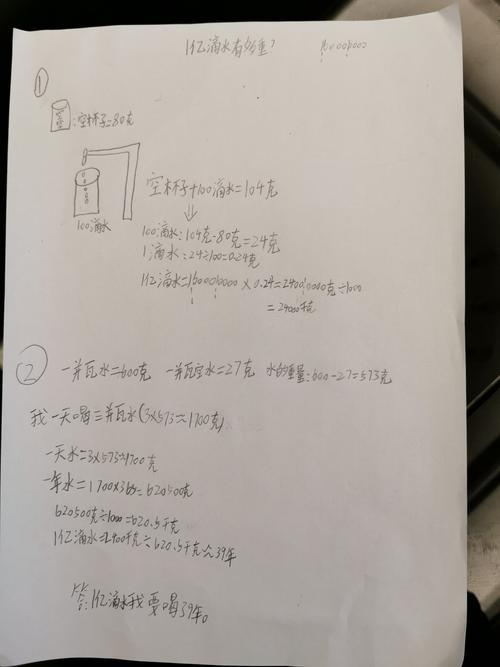 1亿滴水有多重?
①
空杯子=80克
空杯子+100滴水=104克
100滴水
100滴水:104克-80克=24克
1滴水:24÷100=0.24克
1亿滴水=100000000×0.24=24000000克÷1000
=24000千克
②
一并瓦水=600克 一并瓦空水=27克 水的重量:600-27=573克
我一天喝三并瓦水(3×573≈1700克)
一天水=3×573≈1700克
一年水=1700×365=620500克
620500克÷1000=620.5千克
÷620.5千克≈39年
答:1亿滴水我要喝39年。